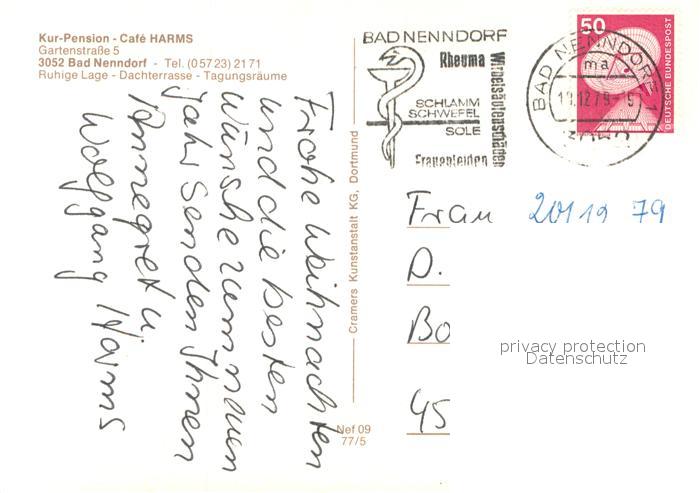 Kur-Pension - Café HARMS
Gartenstraße 5
3052 Bad Nenndorf - Tel. (05723) 2171
Ruhige Lage - Dachterrasse - Tagungsräume
Frohe Weihnachten
und die besten
Wünsche zum neuen
Jahr senden Ihnen
Annegret u.
Wolfgang Harms
Cramers Kunstanstalt KG, Dortmund
Nef 09
77/5
BAD NENNDORF
Rheuma
Wirbelsäulenschäden
SCHLAMM
SCHWEFEL
SOLE
Frauenleiden
BAD NENNDORF 1
ma
3052
50
DEUTSCHE BUNDESPOST
Frau
D.
Bo
45
privacy protection
Datenschutz